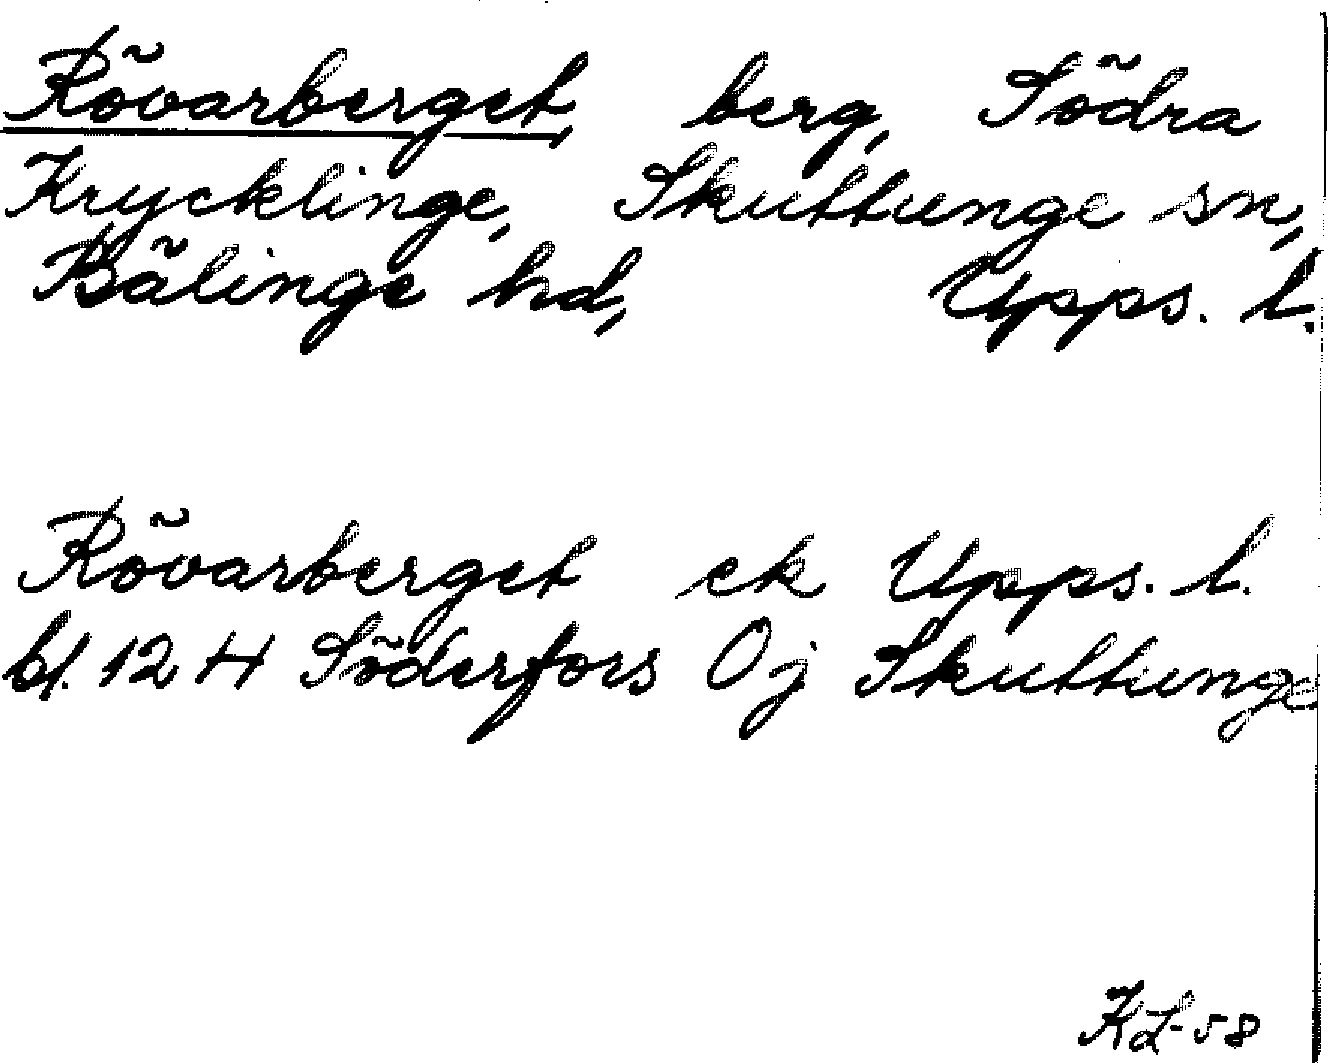 Rövarberget, berg, Södra
Krycklinge, Skuttunge sn,
Bälinge hd, Upps. l.
Rövarberget ek Upps. l.
bl. 12 H Söderfors Oj Skuttunge
KL-58